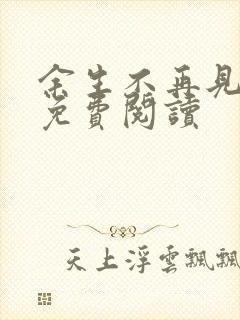 余生不再見
免費閱讀
天上浮雲飄飄